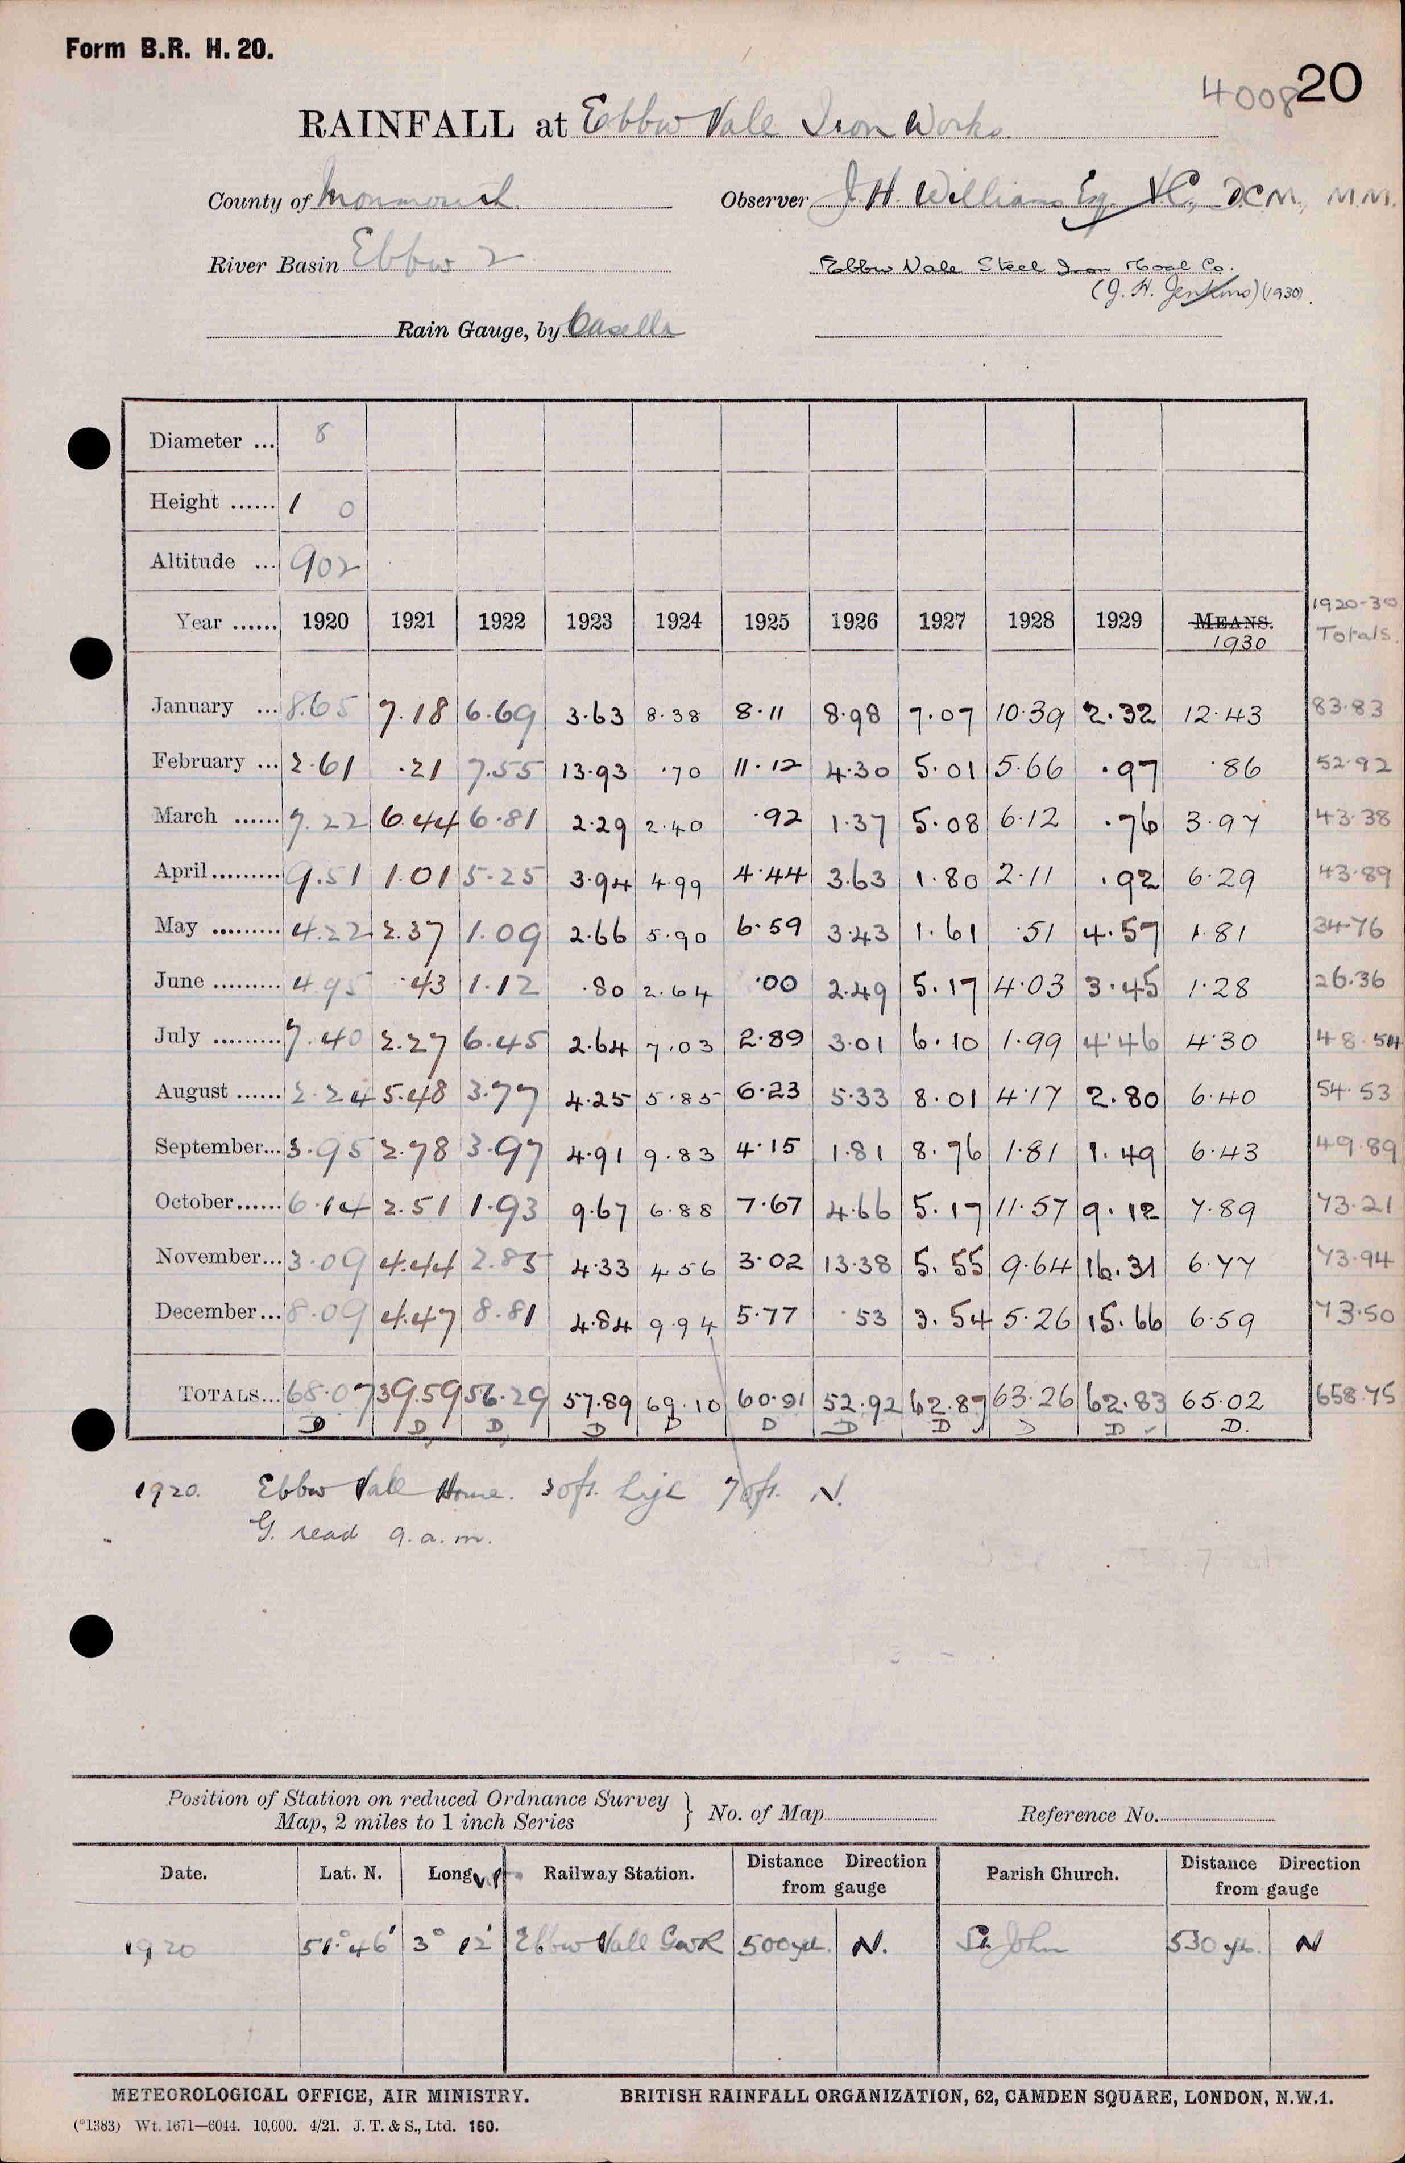 Form B.R. H. 20.
4008 20
RAINFALL at Ebbw Vale Iron Works.
County of Monmouth Observer J. H. Williams Esq. VC., D.C.M., M.M.
River Basin Ebbw 2 Ebbw Vale Steel Iron & Coal Co.
(J. H. Jenkins) (1930).
Rain Gauge, by Casella
Diameter ... 8
Height ...... 1 0
Altitude ... 902
Year ...... 1920 1921 1922 1923 1924 1925 1926 1927 1928 1929 MEANS. 1930 1920-30 Totals.
January ... 8.65 7.18 6.69 3.63 8.38 8.11 8.98 7.07 10.39 2.32 12.43 83.83
February ... 2.61 .21 7.55 13.93 .70 11.12 4.30 5.01 5.66 .97 .86 52.92
March ...... 7.22 6.44 6.81 2.29 2.40 .92 1.37 5.08 6.12 .76 3.97 43.38
April ......... 9.51 1.01 5.25 3.94 4.99 4.44 3.63 1.80 2.11 .92 6.29 43.89
May ......... 4.22 2.37 1.09 2.66 5.90 6.59 3.43 1.61 .51 4.57 1.81 34.76
June ......... 4.95 .43 1.12 .80 2.64 .00 2.49 5.17 4.03 3.45 1.28 26.36
July ......... 7.40 2.27 6.45 2.64 7.03 2.89 3.01 6.10 1.99 4.46 4.30 48.54
August ...... 2.24 5.48 3.77 4.25 5.85 6.23 5.33 8.01 4.17 2.80 6.40 54.53
September... 3.95 2.78 3.97 4.91 9.83 4.15 1.81 8.76 1.81 1.49 6.43 49.89
October...... 6.14 2.51 1.93 9.67 6.88 7.67 4.66 5.17 11.57 9.12 7.89 73.21
November... 3.09 4.44 2.85 4.33 4.56 3.02 13.38 5.55 9.64 16.31 6.77 73.94
December... 8.09 4.47 8.81 4.84 9.94 5.77 .53 3.54 5.26 15.66 6.59 73.50
TOTALS... 68.07 39.59 56.29 57.89 69.10 60.91 52.92 62.87 63.26 62.83 65.02 658.75
D D, D, D D D D D D D D.
1920. Ebbw Vale House. 30ft. high 70ft. N.
G. read 9. a. m.
Position of Station on reduced Ordnance Survey Map, 2 miles to 1 inch Series } No. of Map Reference No.
Date. Lat. N. Long. W. Railway Station. Distance Direction from gauge Parish Church. Distance Direction from gauge
1920 51° 46' 3° 12' Ebbw Vale GWR 500 yd. N. St. John 530 yds. N
METEOROLOGICAL OFFICE, AIR MINISTRY. BRITISH RAINFALL ORGANIZATION, 62, CAMDEN SQUARE, LONDON, N.W.1.
(*1383) Wt. 1671—6044. 10,000. 4/21. J. T. & S., Ltd. 160.